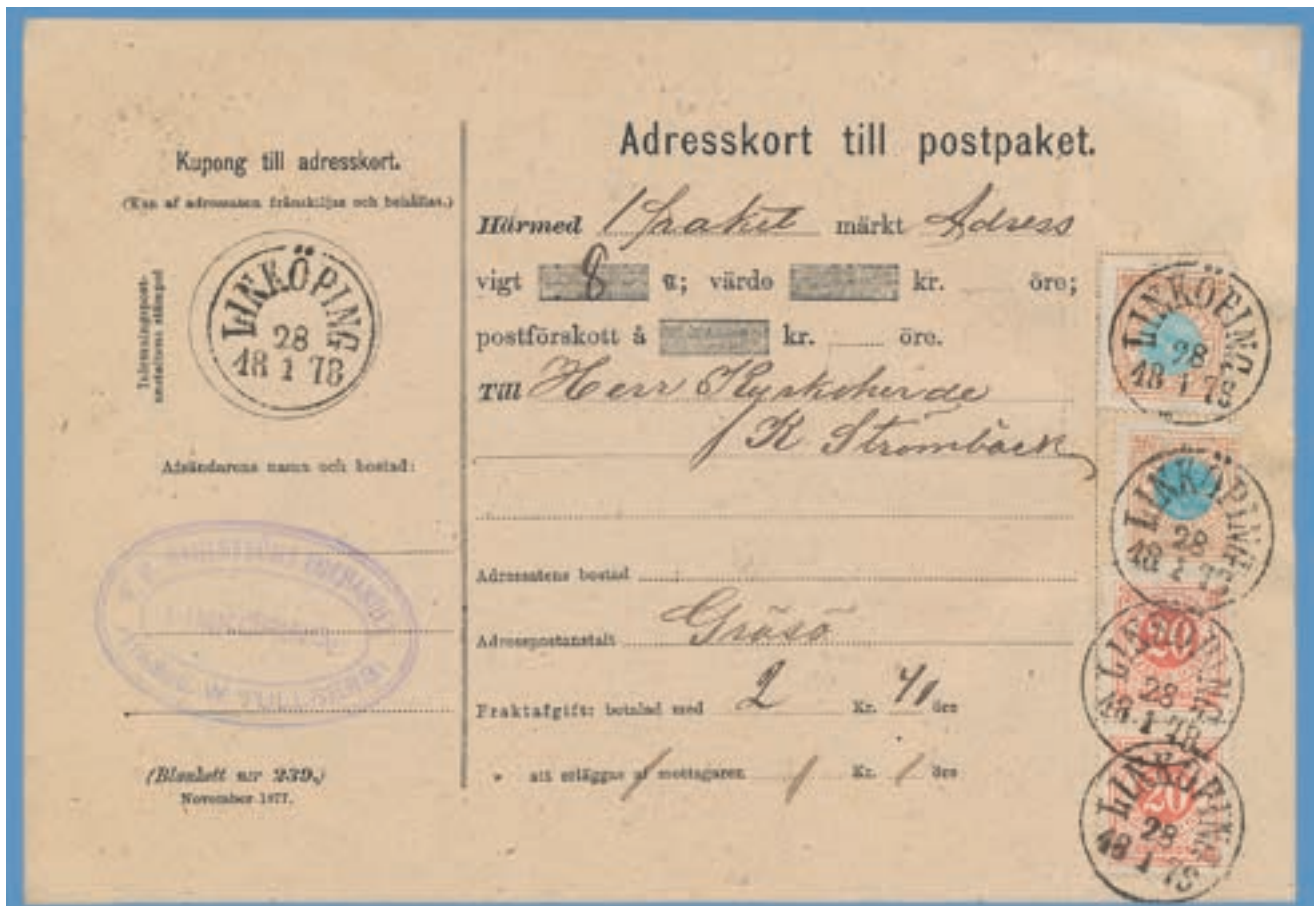 Kupong till adresskort.
(Kan af adressaten frånskiljas och behållas.)
LINKÖPING
28
18 1 78
Inlemningspost-
anstaltens stämpel
Afsändarens namn och bostad:
(Blankett n:r 239.)
November 1877.
Adresskort till postpaket.
Härmed 1 paket märkt Adress
vigt 8 ; värde kr. öre;
postförskott å kr. öre.
Till Herr Kyrkoherde
K Strömbäck
Adressatens bostad
Adresspostanstalt Gräsö
Fraktafgift: betalad med 2 Kr. 40 öre
" att erläggas af mottagaren / Kr. / öre
LINKÖPING
28
18 1 78
LINKÖPING
28
18 1 78
20
LINKÖPING
28
18 1 78
20
LINKÖPING
28
18 1 78